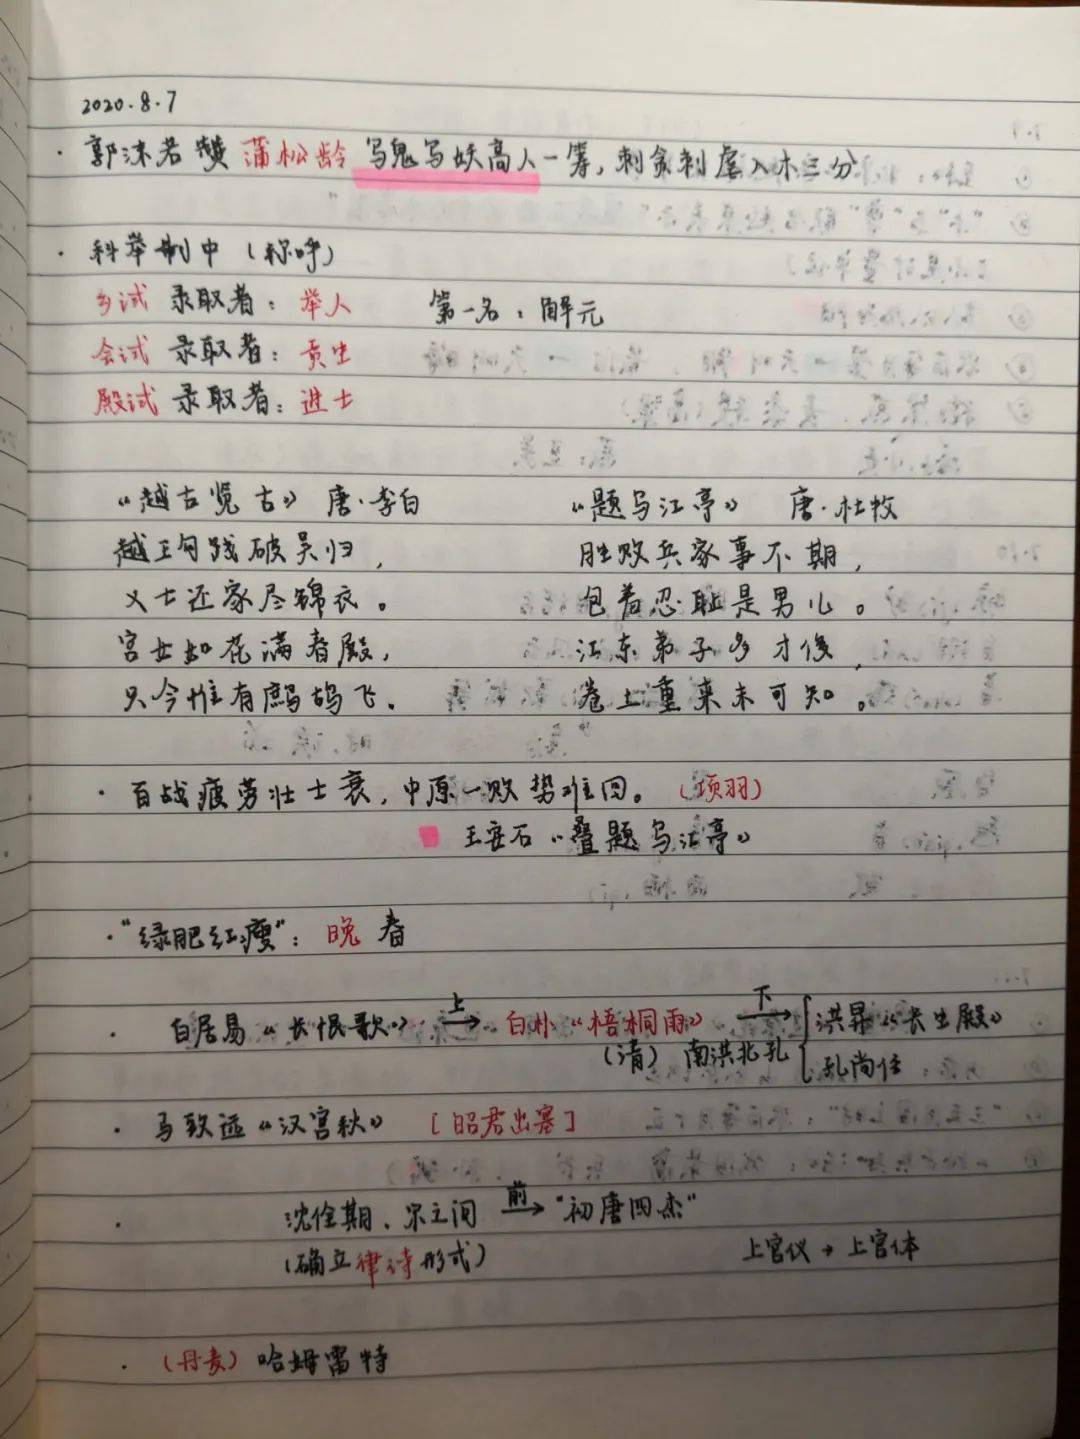 2020.8.7
· 郭沫若赞 蒲松龄 写鬼写妖高人一筹，刺贪刺虐入木三分
· 科举制中（称呼）
乡试 录取者：举人 第一名：解元
会试 录取者：贡生
殿试 录取者：进士
《越古览古》 唐·李白 《题乌江亭》 唐·杜牧
越王句践破吴归， 胜败兵家事不期，
义士还家尽锦衣。 包羞忍耻是男儿。
宫女如花满春殿， 江东弟子多才俊，
只今惟有鹧鸪飞。 卷土重来未可知。
· 百战疲劳壮士衰，中原一败势难回。（项羽）
王安石《叠题乌江亭》
· "绿肥红瘦"：晚春
· 白居易《长恨歌》 上→ 白朴《梧桐雨》 下→ { 洪昇《长生殿》
（清） 南洪北孔 孔尚任
· 马致远《汉宫秋》 [昭君出塞]
· 沈佺期、宋之问 前→ "初唐四杰"
（确立律诗形式） 上官仪→上官体
· （丹麦）哈姆雷特